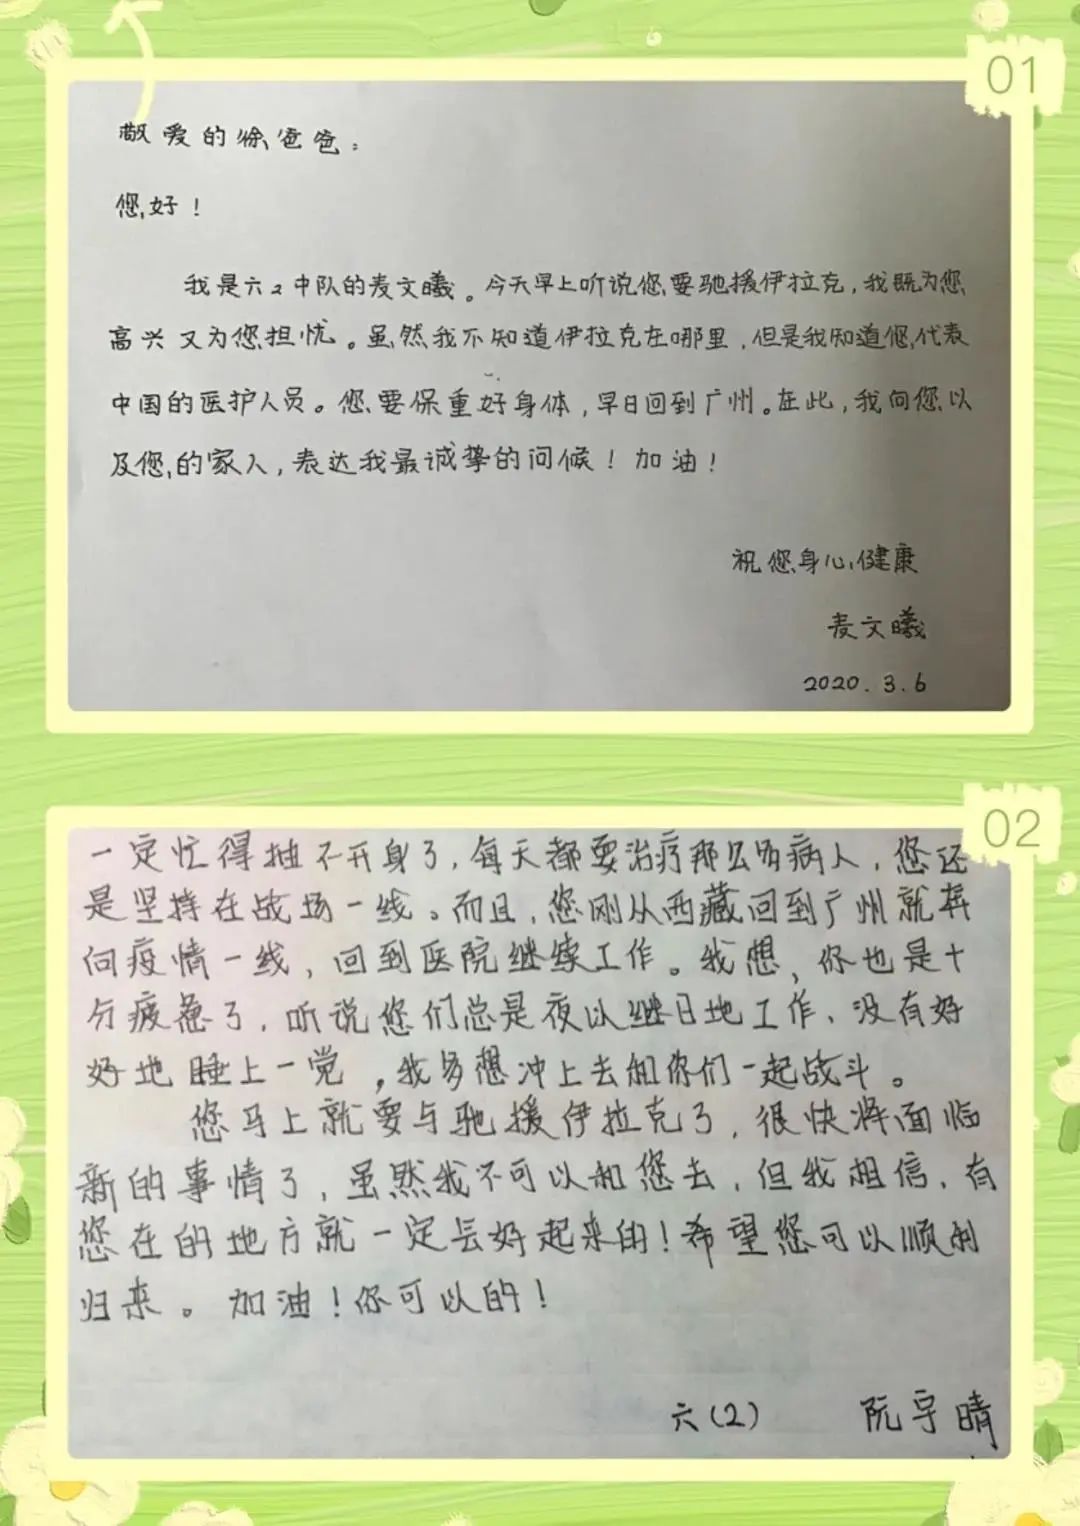 01
敬爱的徐爸爸：
您好！
我是六2中队的麦文曦。今天早上听说您要驰援伊拉克，我既为您
高兴又为您担忧。虽然我不知道伊拉克在哪里，但是我知道您代表
中国的医护人员。您要保重好身体，早日回到广州。在此，我向您以
及您的家人，表达我最诚挚的问候！加油！
祝您身心健康
麦文曦
2020.3.6
02
一定忙得抽不开身了，每天都要治疗那么多病人，您还
是坚持在战场一线。而且，您刚从西藏回到广州就奔
向疫情一线，回到医院继续工作。我想，你也是十
分疲惫了，听说您们总是夜以继日地工作、没有好
好地睡上一觉，我多想冲上去和你们一起战斗。
您马上就要与驰援伊拉克了，很快将面临
新的事情了，虽然我不可以和您去，但我相信，有
您在的地方就一定会好起来的！希望您可以顺利
归来。加油！你可以的！
六（2） 阮宇晴